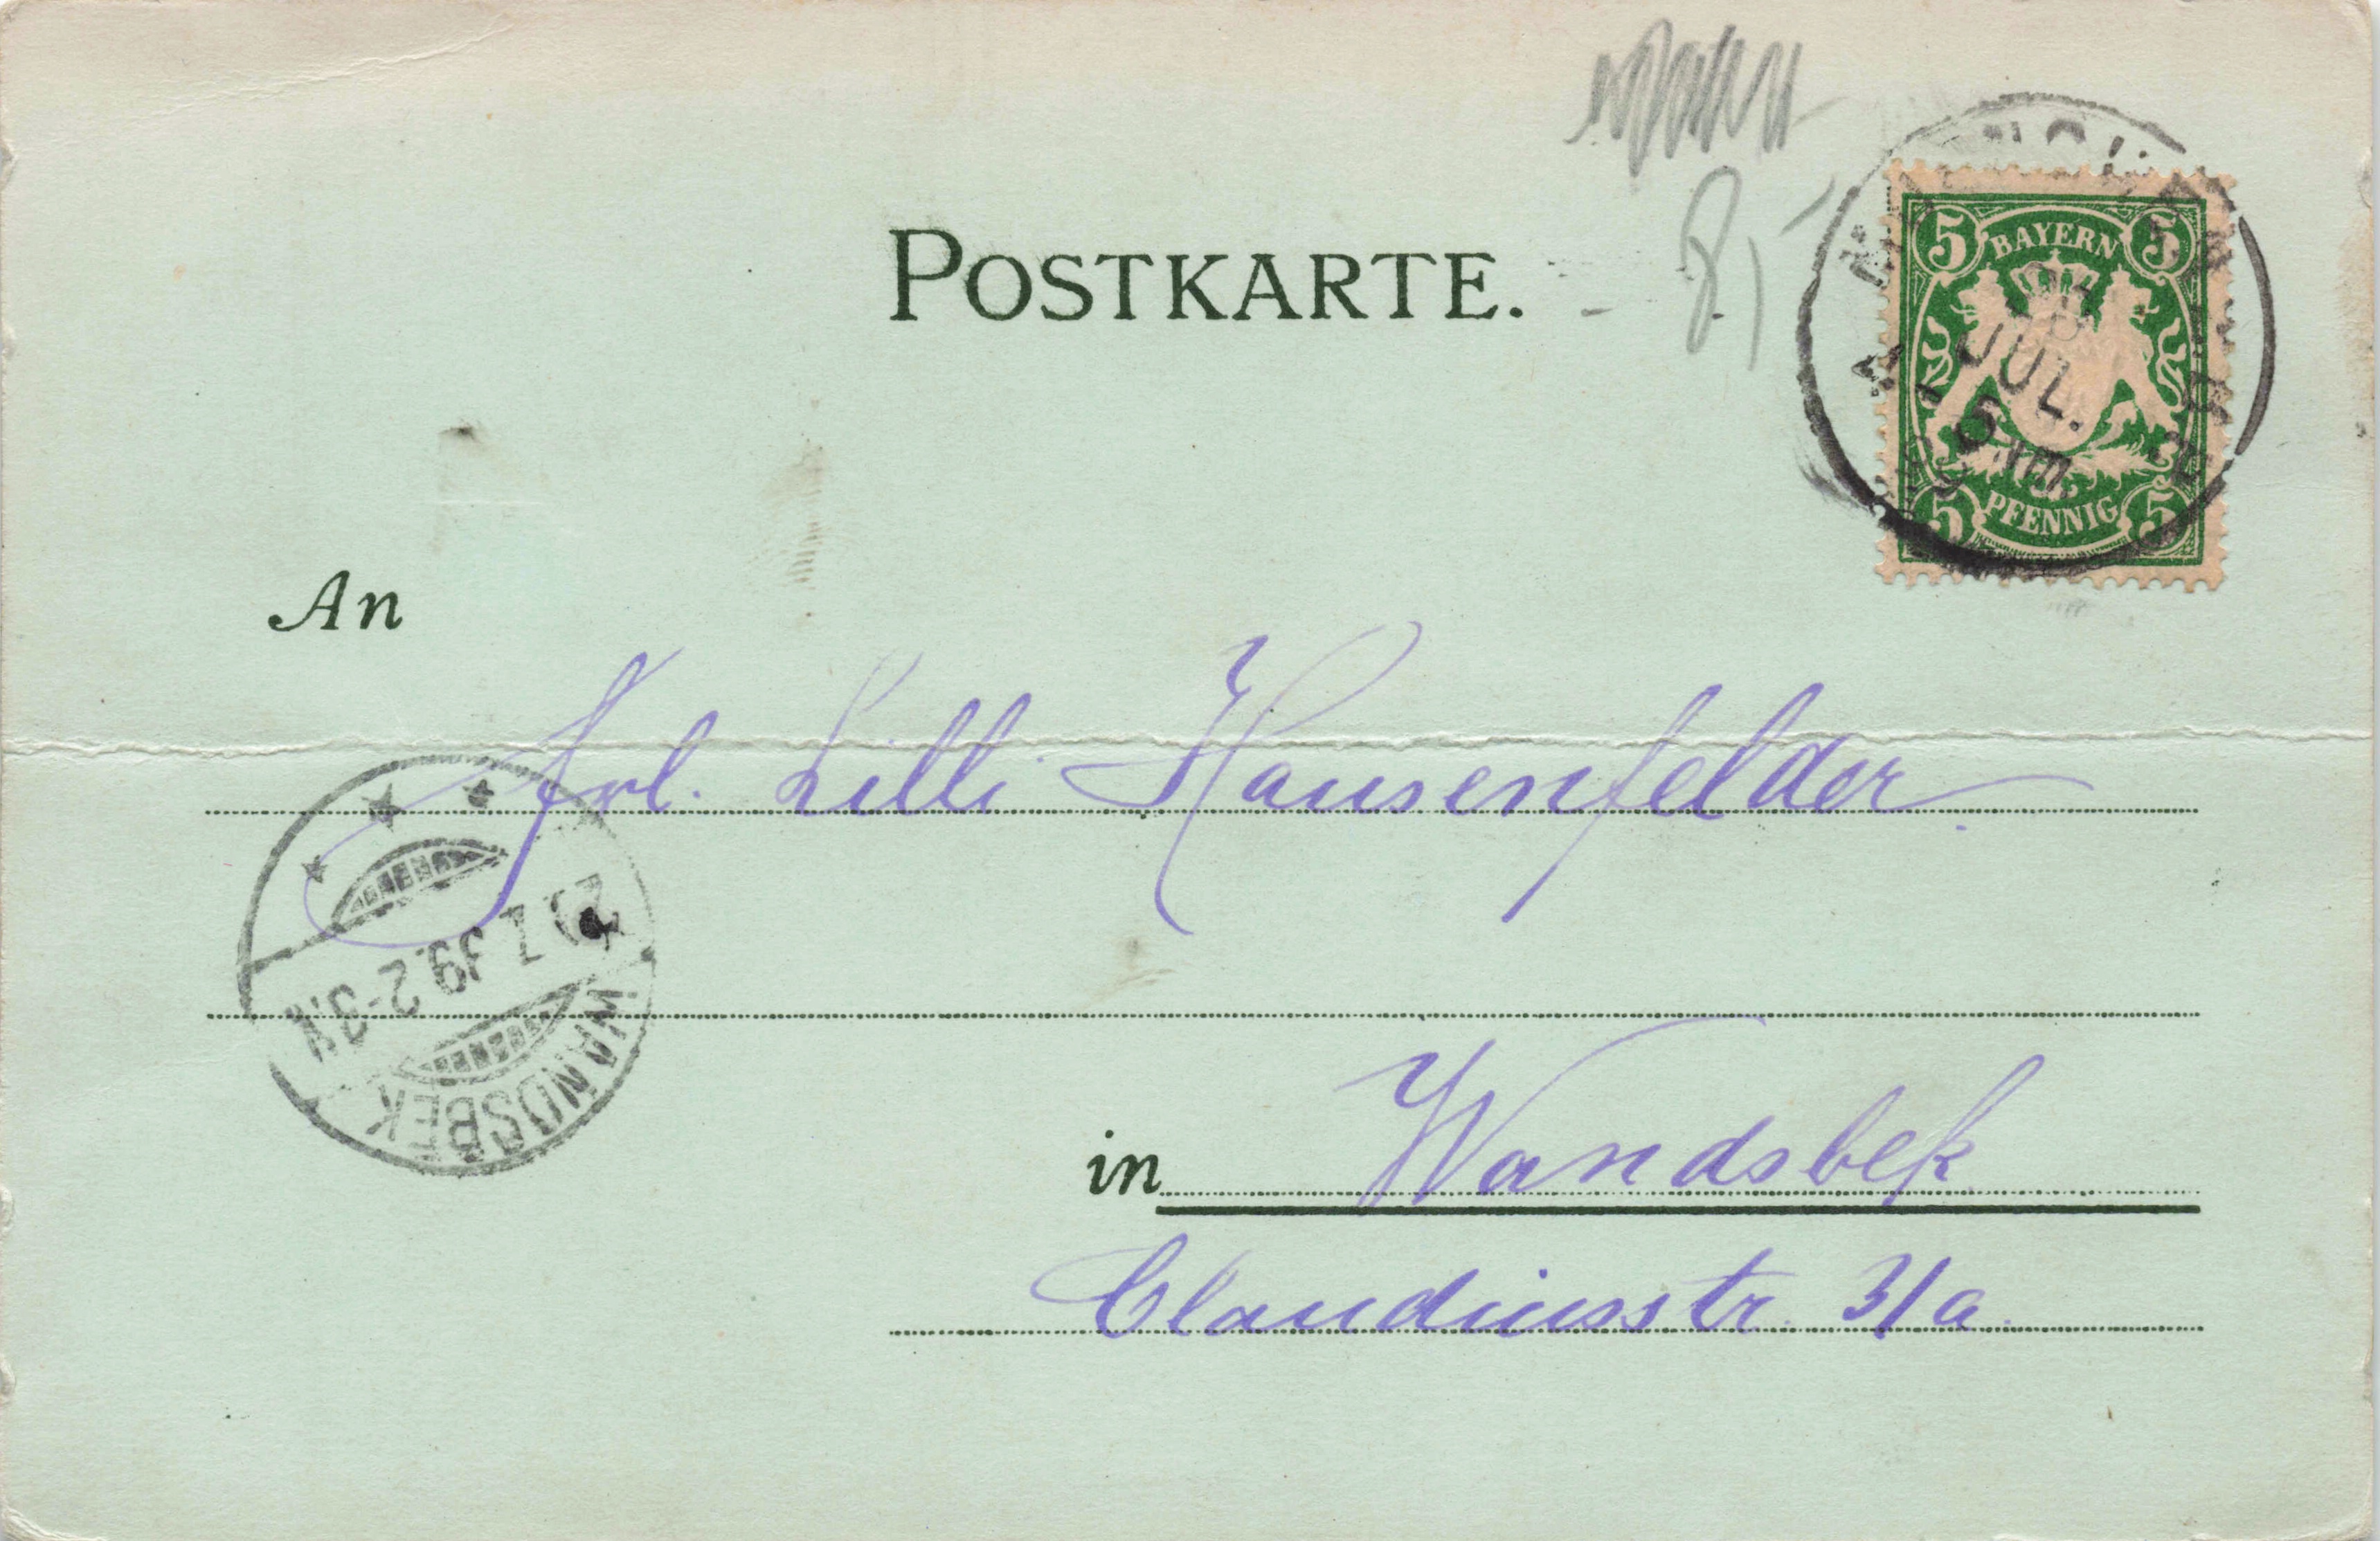 POSTKARTE.
8,-
5 BAYERN 5
JUL.
5 PFENNIG 5
An
Frl. Lilli Hausenfelder
WANDSBEK
2-3N
in Wandsbek
Claudiusstr. 31a.